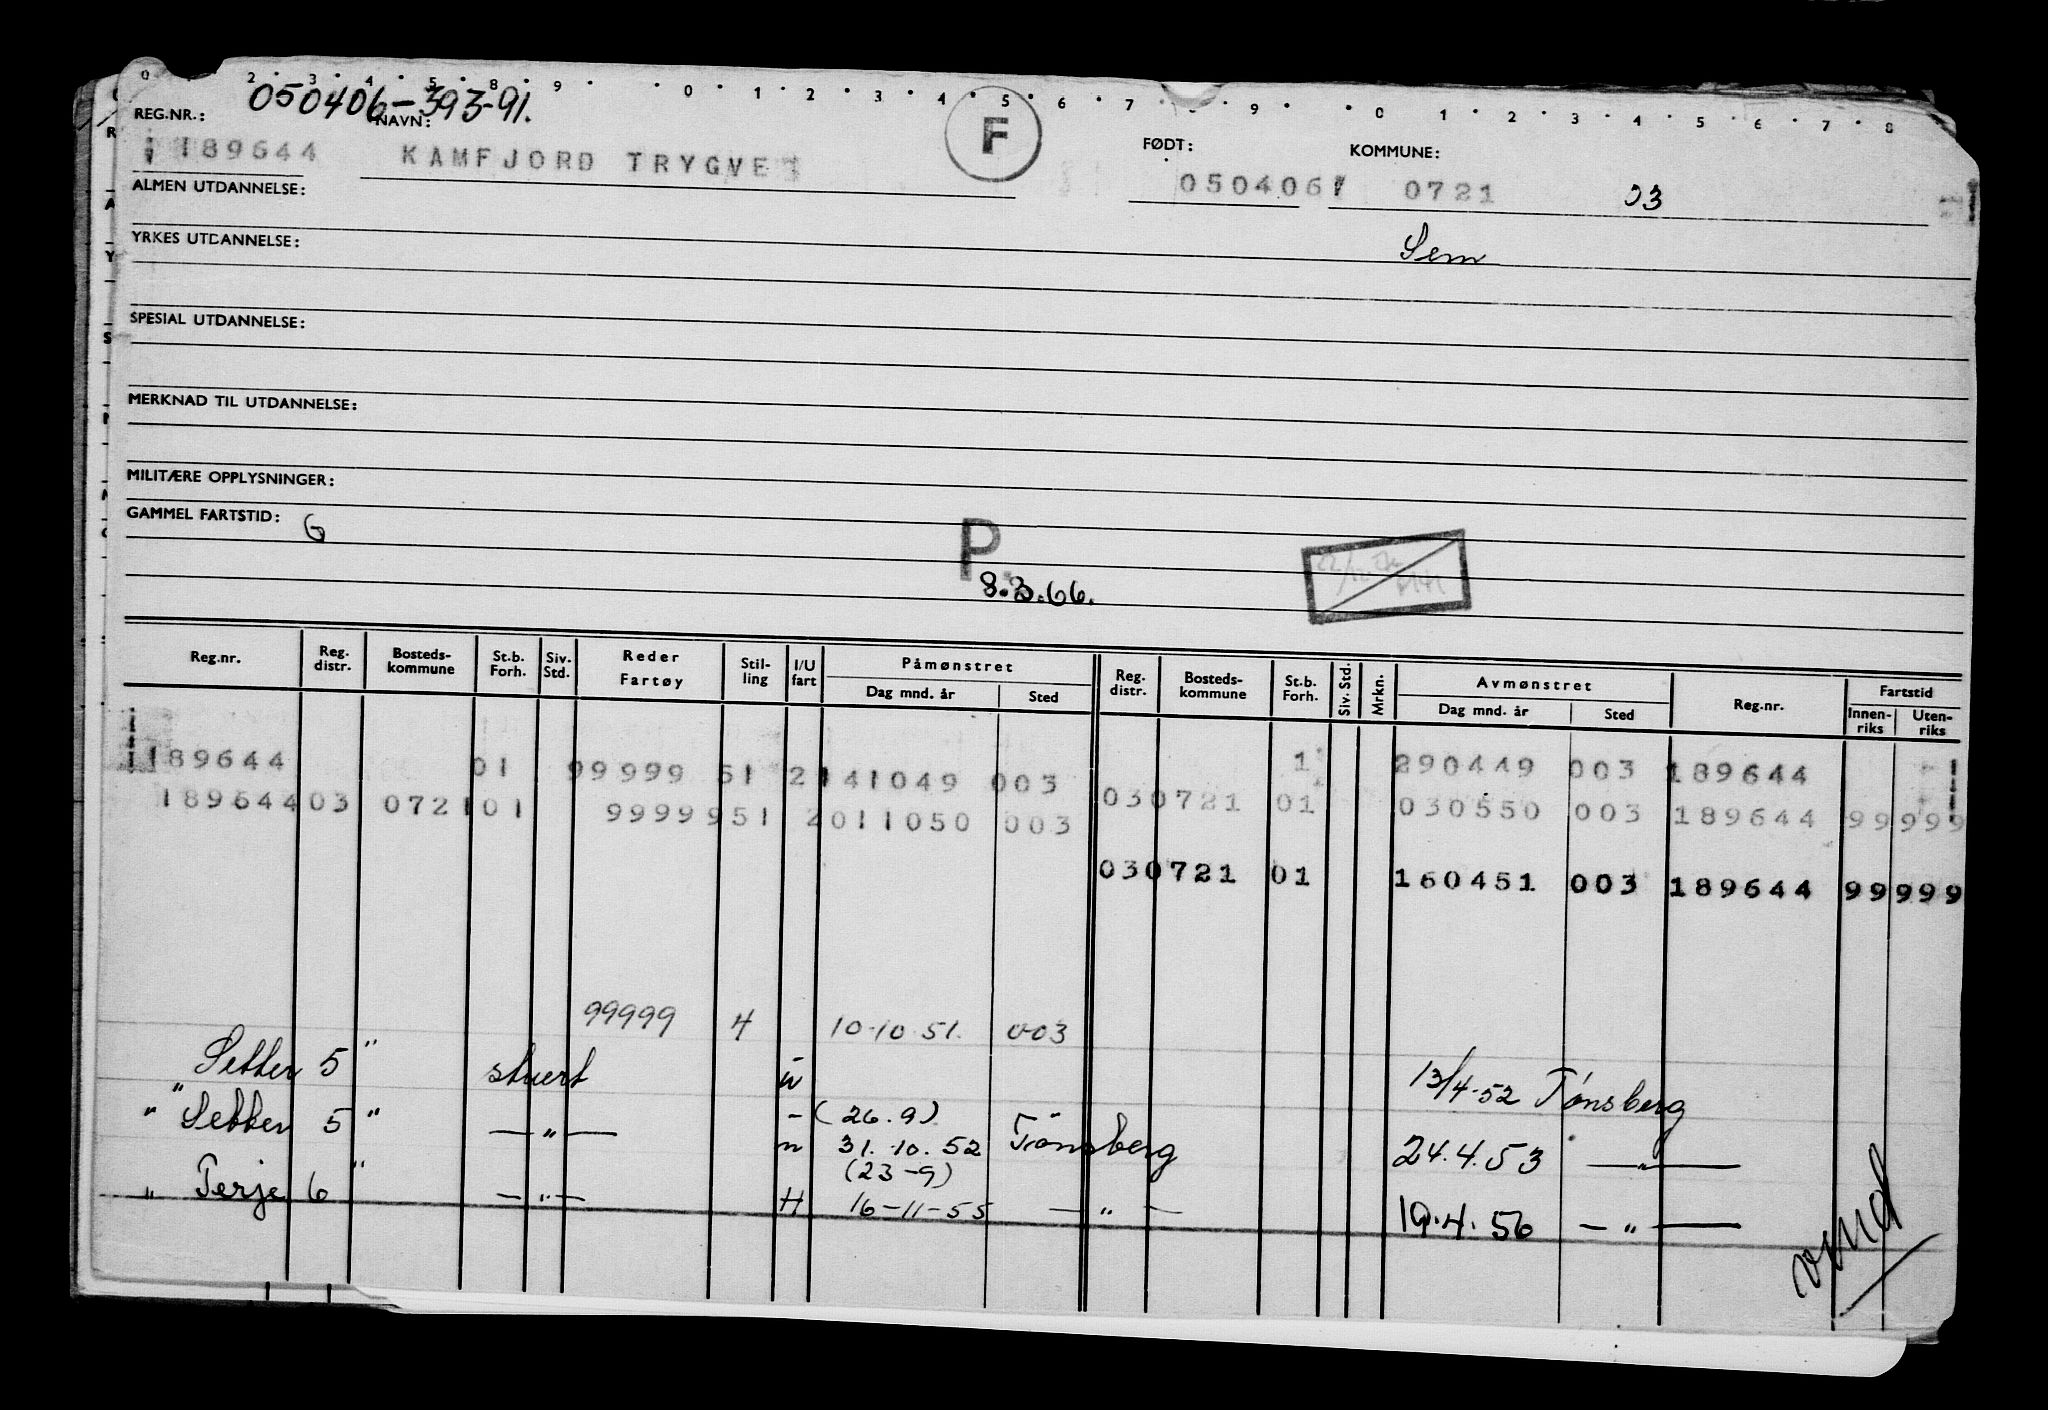 0 2 3 4 5 8 9 0 1 2 3 4 5 6 7 9 0 1 2 3 4 5 6 7 8
050406-393-91.
REG.NR.: NAVN: F FØDT: KOMMUNE:
189644 KAMFJORD TRYGVE 050406 0721 03
ALMEN UTDANNELSE:
YRKES UTDANNELSE: Sem
SPESIAL UTDANNELSE:
MERKNAD TIL UTDANNELSE:
MILITÆRE OPPLYSNINGER:
GAMMEL FARTSTID: G
P.
8.3.66.
Reg.nr. Reg. distr. Bosteds-kommune St.b. Forh. Siv. Std. Reder Fartøy Stil-ling I/U fart Påmønstret Dag mnd. år Sted Reg. distr. Bosteds-kommune St.b. Forh. Siv. Std. Mrkn. Avmønstret Dag mnd. år Sted Reg.nr. Fartstid Innen-riks Uten-riks
189644 01 99999 51 2 141049 003 1 290449 003 189644
189644 03 0721 01 99999 51 2 011050 003 03 0721 01 030550 003 189644 99 999
03 0721 01 160451 003 189644 99 999
99999 4 10-10 51. 003
Setter 5 " stuert u 13/4-52 Tønsberg
" Setter 5 " — " — - (26.9)
" 31.10.52 Tønsberg 24.4.53 — " —
(23-9)
" Terje 6 " — " — H 16-11-55 — " — 19.4.56 — " —
vend